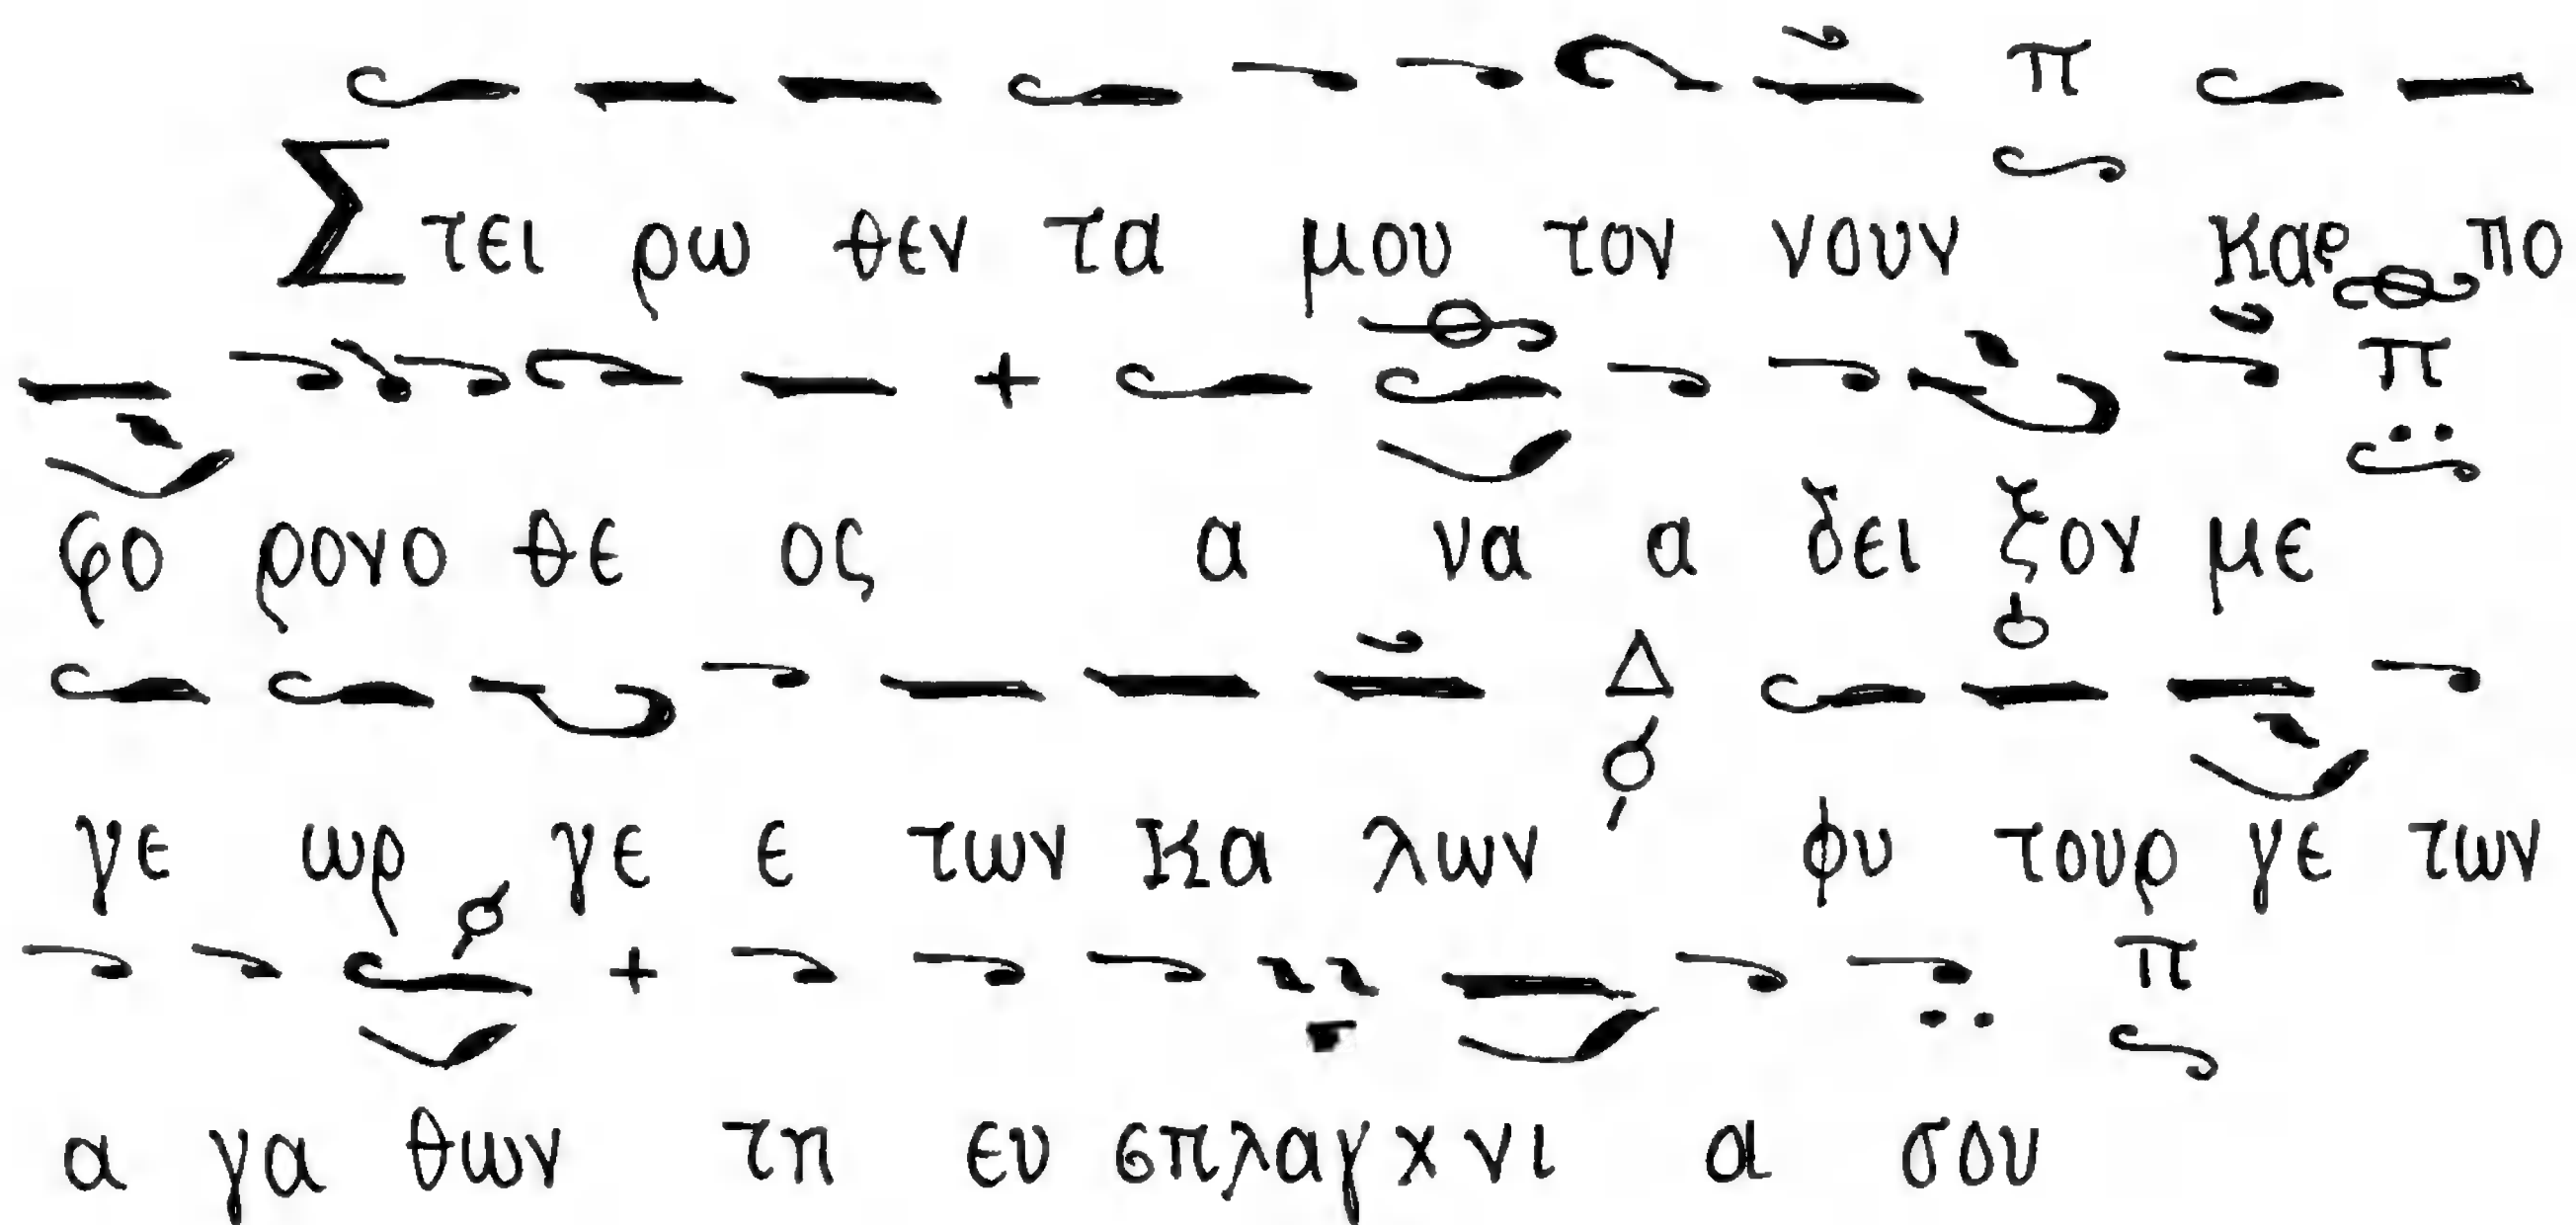 π
Στει ρω θεν τα μου τον νουν καρ πο
π
φο ρονο θε ος α να α δει ξον με
Δ
γε ωρ γε ε των κα λων φυ τουρ γε των
π
α γα θων τη ευ σπλαγχ νι α σου